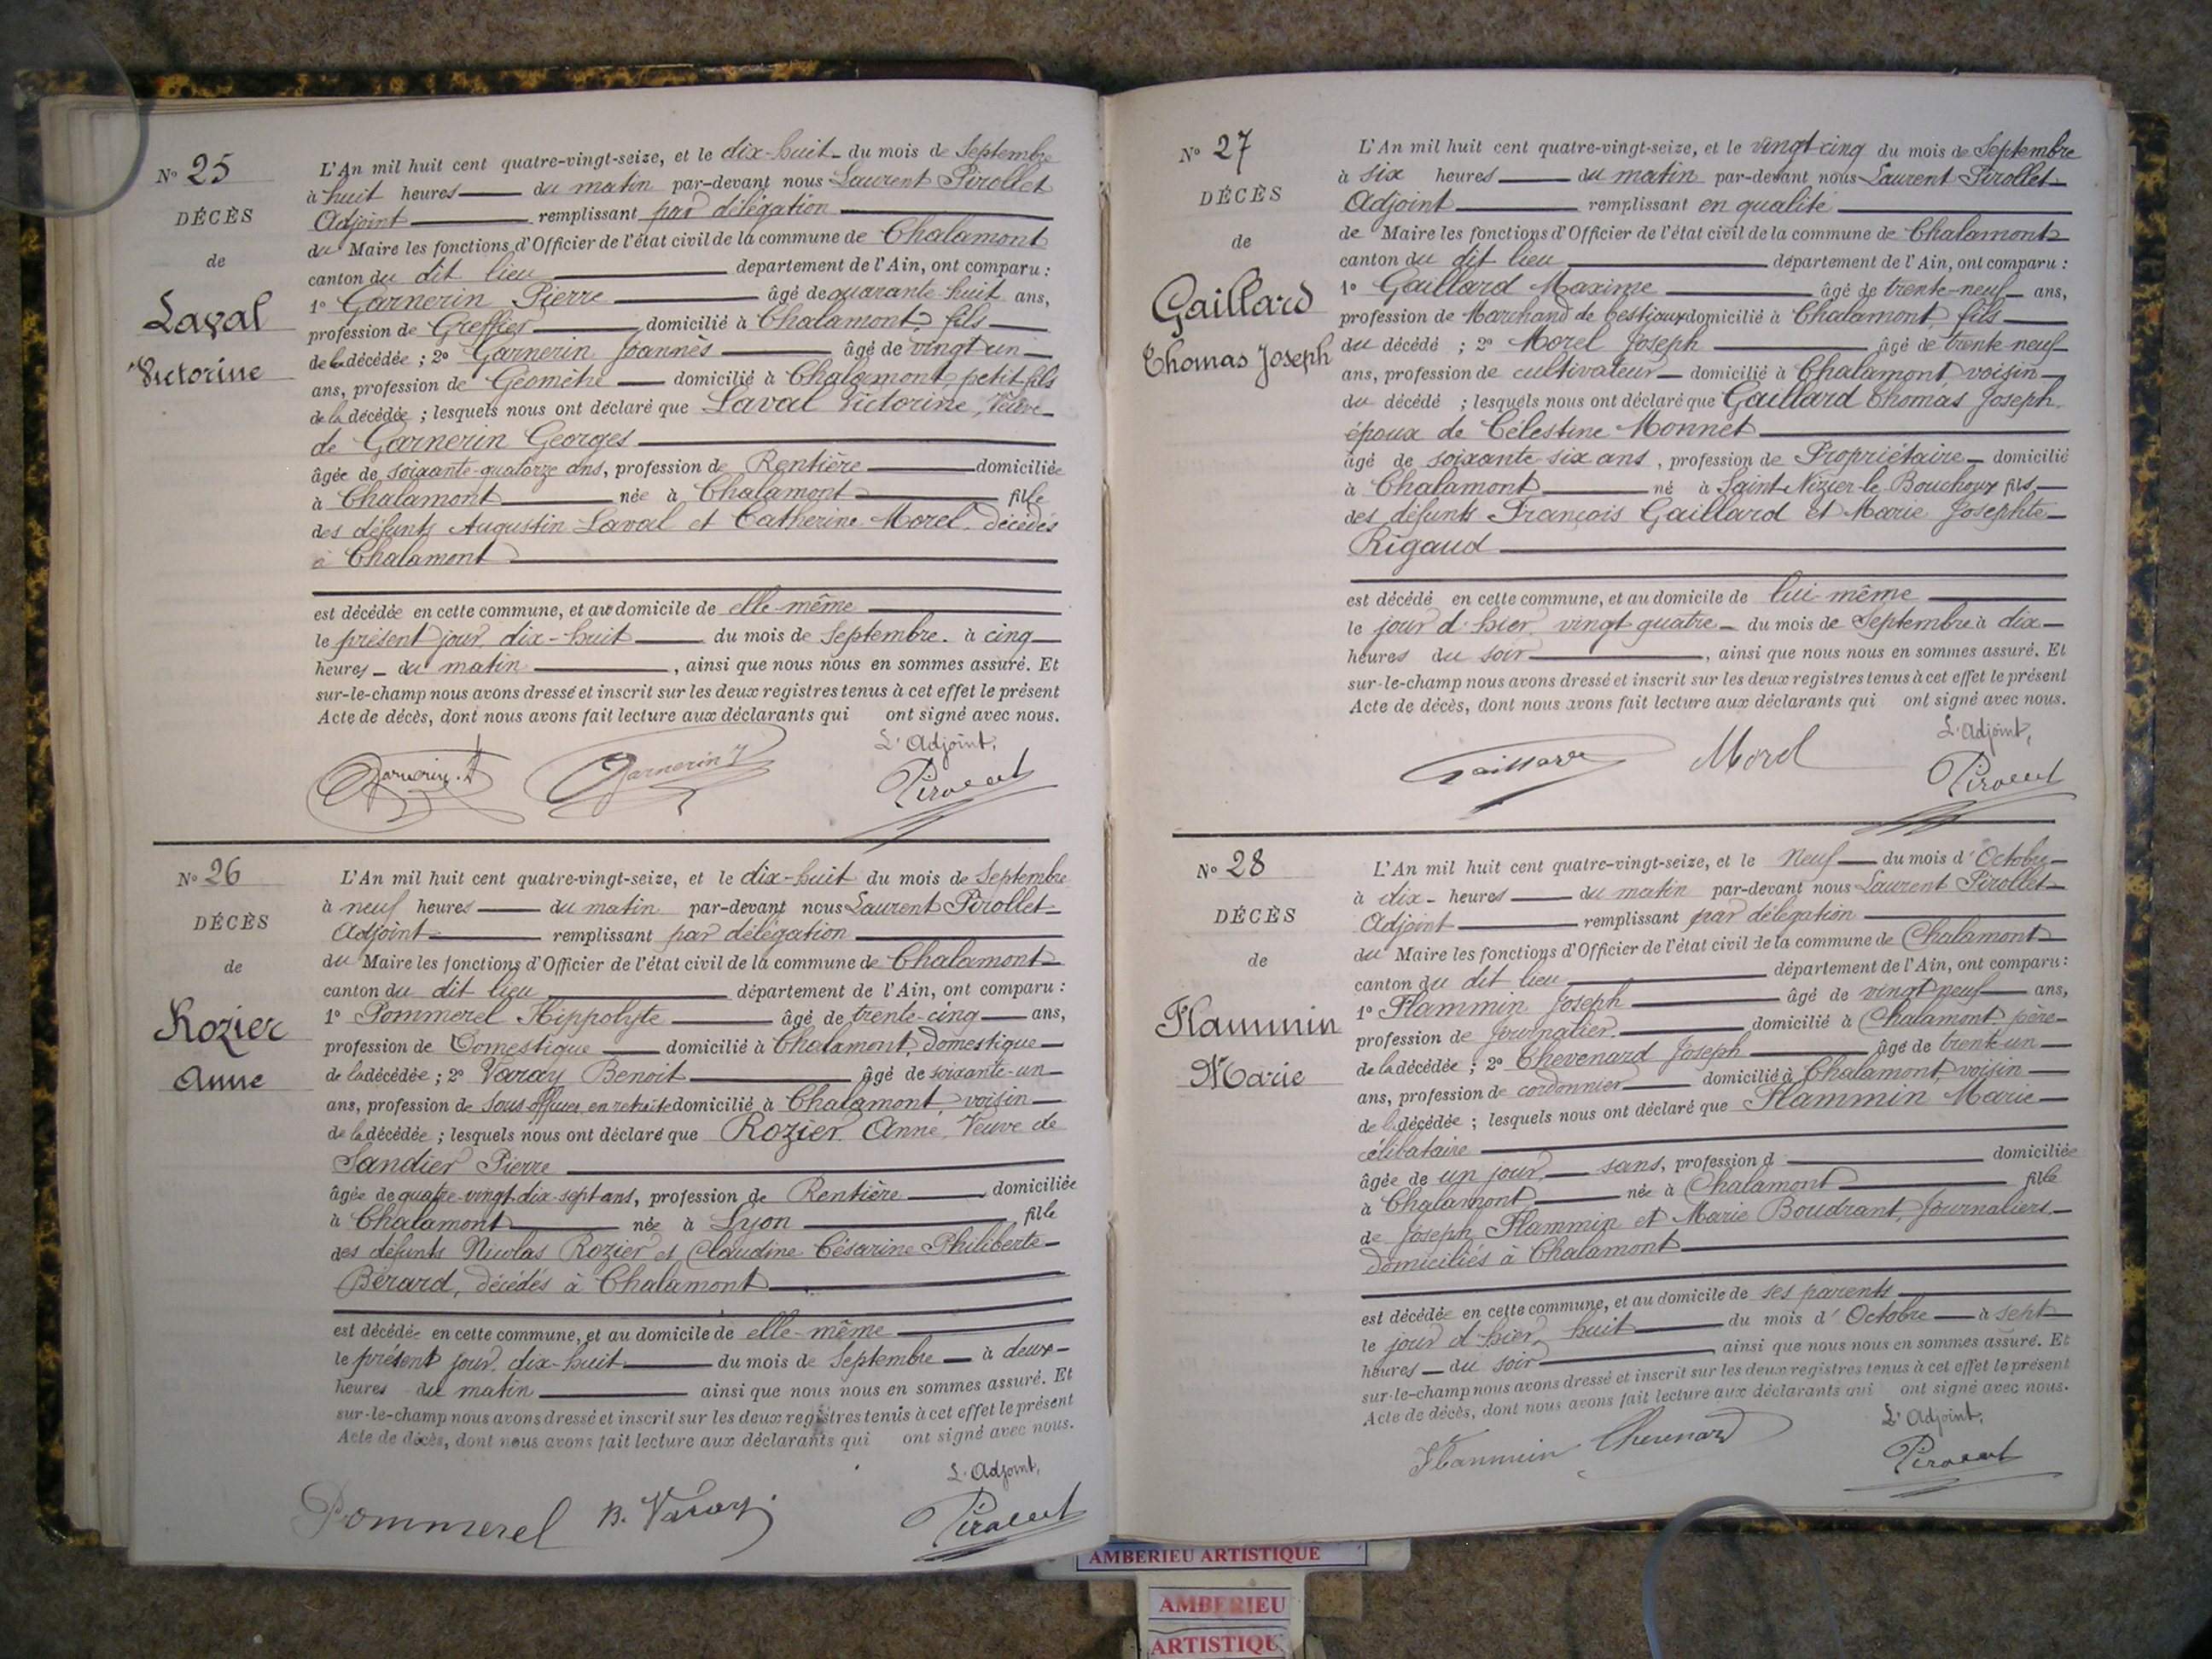 N° 25
DÉCÈS
de
Laval
Victorine
L'An mil huit cent quatre-vingt-seize, et le dix-huit du mois de Septembre
à huit heures du matin par-devant nous Laurent Pirollet
Adjoint remplissant par délégation
du Maire les fonctions d'Officier de l'état civil de la commune de Chalamont
canton du dit lieu département de l'Ain, ont comparu :
1° Garnerin Pierre âgé de quarante-huit ans,
profession de Greffier domicilié à Chalamont, fils
de la décédée ; 2° Garnerin Joannès âgé de vingt-un
ans, profession de Géomètre domicilié à Chalamont, petit-fils
de la décédée ; lesquels nous ont déclaré que Laval Victorine, Veuve
de Garnerin Georges
âgée de soixante-quatorze ans, profession de Rentière domiciliée
à Chalamont née à Chalamont fille
des défunts Augustin Laval et Catherine Morel, décédés
à Chalamont
est décédée en cette commune, et au domicile de elle-même
le présent jour, dix-huit du mois de Septembre à cinq
heures du matin, ainsi que nous nous en sommes assuré. Et
sur-le-champ nous avons dressé et inscrit sur les deux registres tenus à cet effet le présent
Acte de décès, dont nous avons fait lecture aux déclarants qui ont signé avec nous.
L'Adjoint,
Garnerin P Garnerin J Pirollet
N° 26
DÉCÈS
de
Rozier
Anne
L'An mil huit cent quatre-vingt-seize, et le dix-huit du mois de Septembre
à neuf heures du matin par-devant nous Laurent Pirollet
Adjoint remplissant par délégation
du Maire les fonctions d'Officier de l'état civil de la commune de Chalamont
canton du dit lieu département de l'Ain, ont comparu :
1° Pommerel Hippolyte âgé de trente-cinq ans,
profession de Domestique domicilié à Chalamont, domestique
de la décédée ; 2° Varay Benoit âgé de soixante-un
ans, profession de Sous-officier en retraite domicilié à Chalamont, voisin
de la décédée ; lesquels nous ont déclaré que Rozier Anne, Veuve de
Sandier Pierre
âgée de quatre-vingt-dix-sept ans, profession de Rentière domiciliée
à Chalamont née à Lyon fille
des défunts Nicolas Rozier et Claudine Césarine Philiberte
Bérard, décédés à Chalamont
est décédée en cette commune, et au domicile de elle-même
le présent jour, dix-huit du mois de Septembre à deux
heures du matin ainsi que nous nous en sommes assuré. Et
sur-le-champ nous avons dressé et inscrit sur les deux registres tenus à cet effet le présent
Acte de décès, dont nous avons fait lecture aux déclarants qui ont signé avec nous.
L'Adjoint,
Pommerel B. Varay Pirollet
N° 27
DÉCÈS
de
Gaillard
Thomas Joseph
L'An mil huit cent quatre-vingt-seize, et le vingt-cinq du mois de Septembre
à six heures du matin par-devant nous Laurent Pirollet
Adjoint remplissant en qualité
de Maire les fonctions d'Officier de l'état civil de la commune de Chalamont
canton du dit lieu département de l'Ain, ont comparu :
1° Gaillard Maxime âgé de trente-neuf ans,
profession de Marchand de bestiaux domicilié à Chalamont, fils
du décédé ; 2° Morel Joseph âgé de trente-neuf
ans, profession de cultivateur domicilié à Chalamont, voisin
du décédé ; lesquels nous ont déclaré que Gaillard Thomas Joseph
époux de Célestine Monnet
âgé de soixante-six ans, profession de Propriétaire domicilié
à Chalamont né à Saint-Nizier-le-Bouchoux fils
des défunts François Gaillard et Marie Josephte
Rigaud
est décédé en cette commune, et au domicile de lui-même
le jour d'hier, vingt quatre du mois de Septembre à dix
heures du soir, ainsi que nous nous en sommes assuré. Et
sur-le-champ nous avons dressé et inscrit sur les deux registres tenus à cet effet le présent
Acte de décès, dont nous avons fait lecture aux déclarants qui ont signé avec nous.
L'Adjoint,
Gaillard Morel Pirollet
N° 28
DÉCÈS
de
Flammin
Marie
L'An mil huit cent quatre-vingt-seize, et le neuf du mois d'Octobre
à dix heures du matin par-devant nous Laurent Pirollet
Adjoint remplissant par délégation
du Maire les fonctions d'Officier de l'état civil de la commune de Chalamont
canton du dit lieu département de l'Ain, ont comparu :
1° Flammin Joseph âgé de vingt neuf ans,
profession de Journalier domicilié à Chalamont, père
de la décédée ; 2° Chevenard Joseph âgé de trente-un
ans, profession de cordonnier domicilié à Chalamont, voisin
de la décédée ; lesquels nous ont déclaré que Flammin Marie
célibataire
âgée de un jour, sans, profession d domiciliée
à Chalamont née à Chalamont fille
de Joseph Flammin et Marie Boudrant, Journaliers
domiciliés à Chalamont
est décédée en cette commune, et au domicile de ses parents
le jour d'hier, huit du mois d'Octobre à sept
heures du soir ainsi que nous nous en sommes assuré. Et
sur-le-champ nous avons dressé et inscrit sur les deux registres tenus à cet effet le présent
Acte de décès, dont nous avons fait lecture aux déclarants qui ont signé avec nous.
L'Adjoint,
Flammin Chevenard Pirollet
AMBERIEU ARTISTIQUE
AMBERIEU
ARTISTIQU